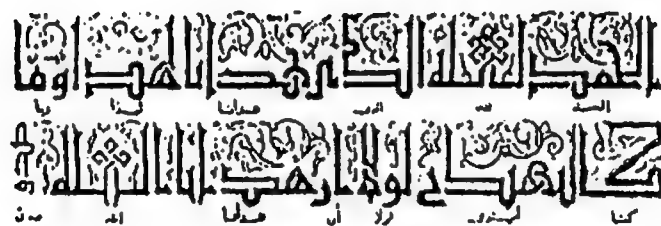 الحمد لله الذي هدانا لهذا وما
الحمد لله الذي هدانا لهذا وما
كنا لنهتدي لولا أن هدانا الله
كنا لنهتدي لولا أن هدانا الله صدق